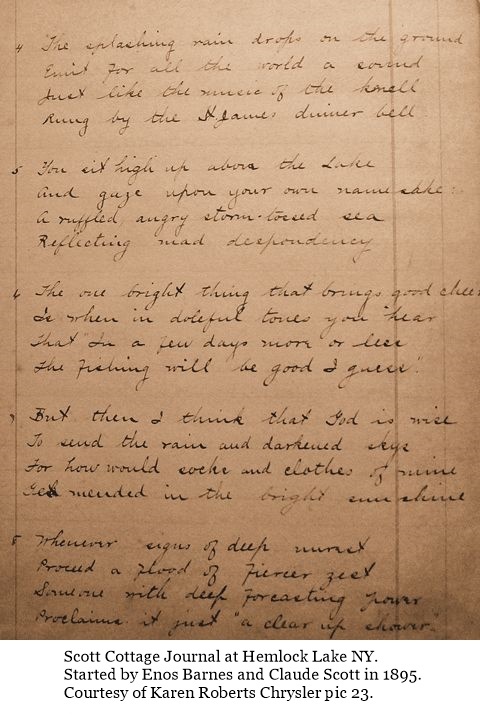 4 The splashing rain drops on the ground
Emit for all the world a sound
Just like the music of the knell
Rung by the St James dinner bell.
5 You sit high up above the Lake
And gaze upon your own name sake:
A ruffled angry storm-tossed sea
Reflecting mad despondency
6 The one bright thing that brings good cheer
Is when in doleful tones you hear
That "In a few days more or less
The fishing will be good I guess".
7 But then I think that God is wise
To send the rain and darkened skys
For how would socks and clothes of mine
Get mended in the bright sunshine
8 Whenever signs of deep unrest
Proceed a flood of fiercer zest
Someone with deep forecasting power
Proclaims it just "a clear up shower".
Scott Cottage Journal at Hemlock Lake NY.
Started by Enos Barnes and Claude Scott in 1895.
Courtesy of Karen Roberts Chrysler pic 23.